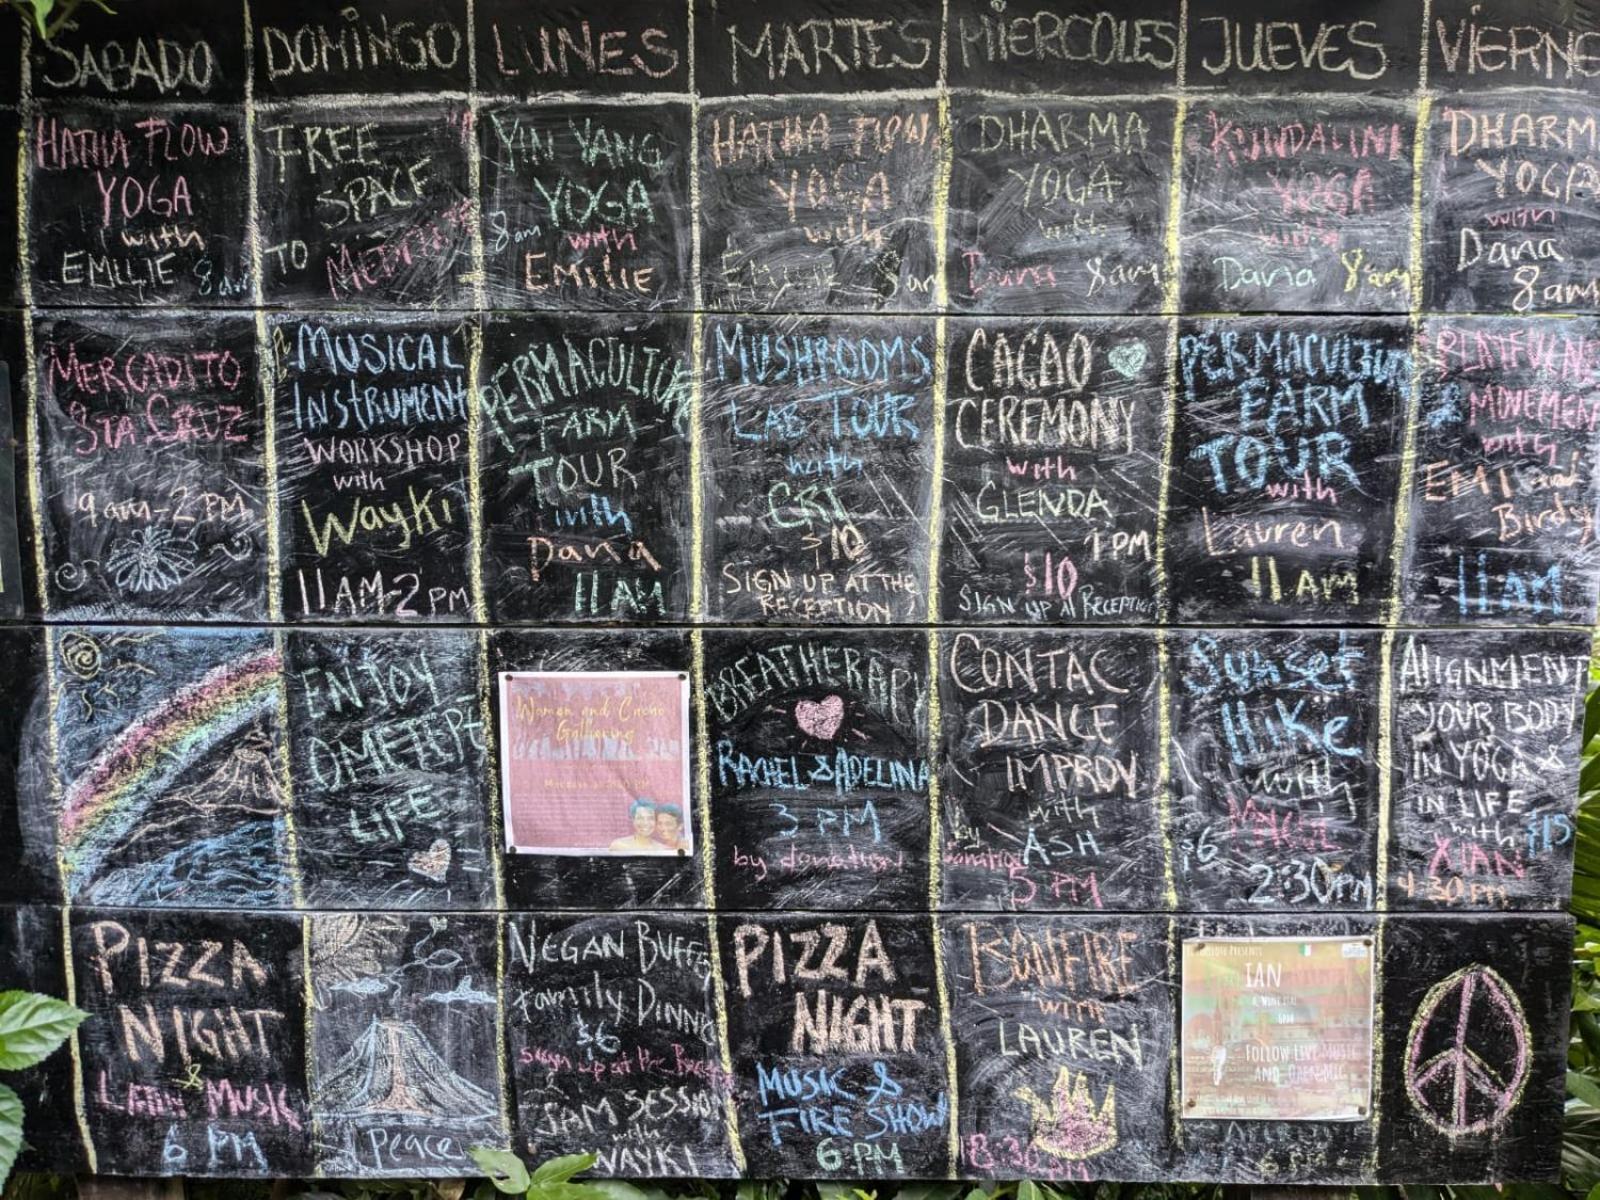 SABADO
DOMINGO
LUNES
MARTES
MIERCOLES
JUEVES
VIERNE
HATHA FLOW
YOGA
with
EMILIE 8am
FREE
SPACE
TO
YIN YANG
YOGA
8am with
EMILIE
HATHA FLOW
YOGA
with
EMILIE 8am
DHARMA
YOGA
with
Dana 8am
KUNDALINI
YOGA
with
Dana 8am
DHARM
YOGA
with
Dana
8am
MERCADITO
STA CRUZ
9am-2PM
MUSICAL
INSTRUMENT
WORKSHOP
with
WayKi
11AM-2PM
PERMACULTURE
FARM
TOUR
with
Dana
11AM
MUSHROOMS
LAB TOUR
with
CRI
$10
SIGN UP AT THE
RECEPTION
CACAO
CEREMONY
with
GLENDA
1PM
$10
SIGN UP AT RECEPTION
PERMACULTUR
FARM
TOUR
with
Lauren
11AM
PLAYFULNE
MOVEMEN
with
EMI and
Birdsy
11AM
ENJOY
OMETEPE
LIFE
Women and Cacao
Gathering
BREATHERAPY
RACHEL & ADELINA
3 PM
by donation
CONTAC
DANCE
IMPROV
with
by
ASH
5 PM
Sunset
Hike
with
$6
2:30PM
AlIGNMENT
YOUR BODY
IN YOGA &
IN LIFE
with $15
XIAN
4:30PM
PIZZA
NIGHT
&
LATIN MUSIC
6 PM
Peace
VEGAN BUFFE
Family DINNE
$6
sign up at the Rece
JAM SESSION
with
WAYKI
PIZZA
NIGHT
MUSIC &
FIRE SHOW
6PM
BONFIRE
with
LAUREN
8:30PM
PRESENTS
IAN
6PM
FOLLOW LIVE MUSIC
AND OPEN MIC
6 PM